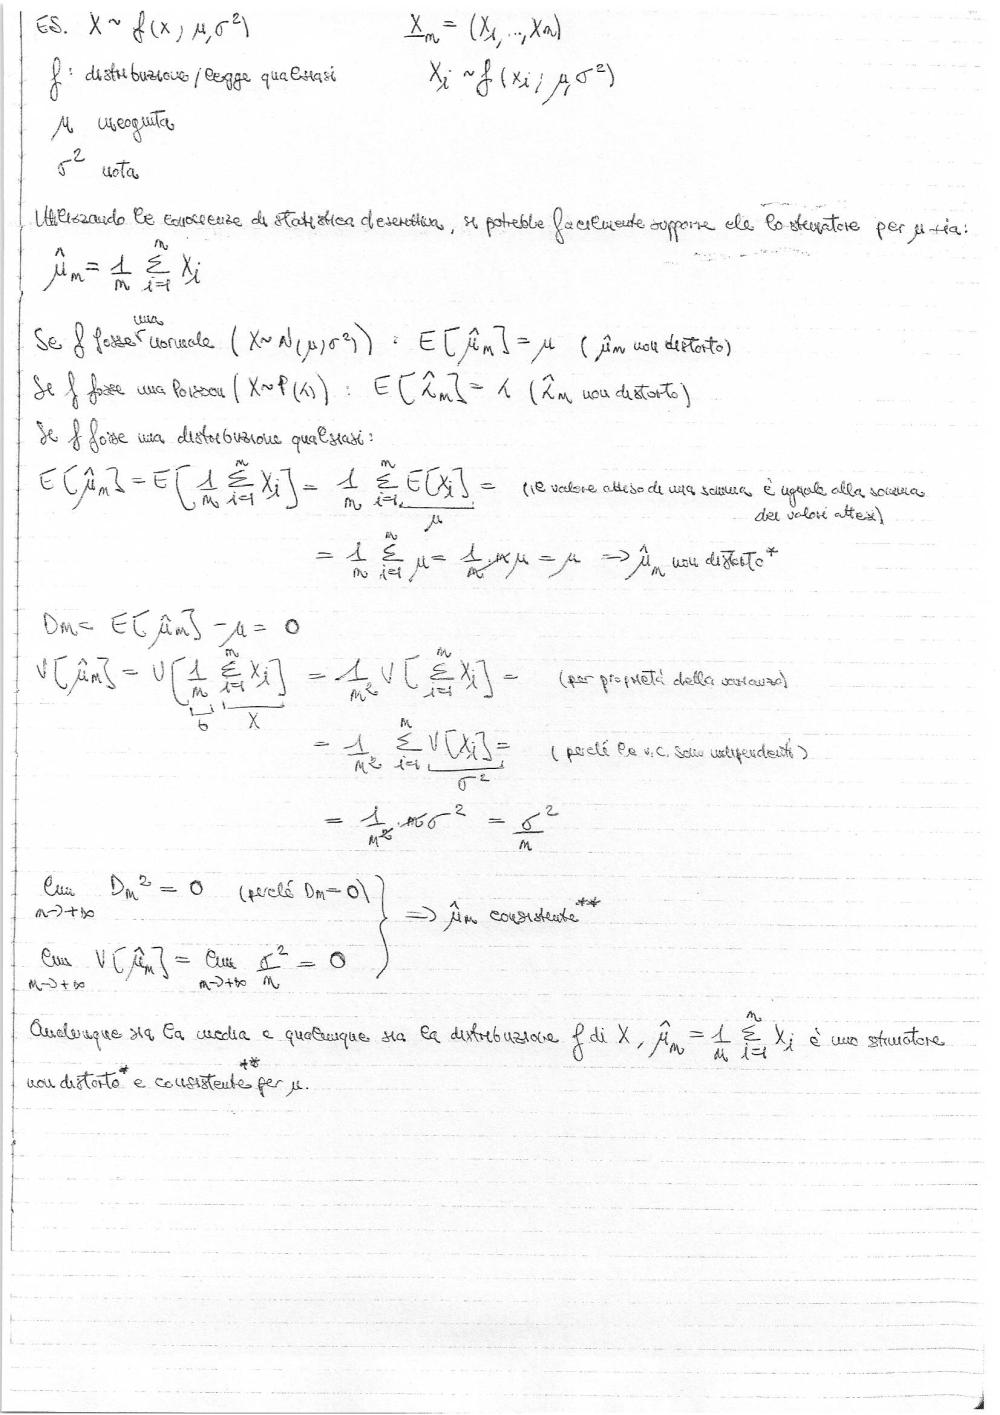 ES. X ~ f(x; μ, σ²)    X_n = (X_1, ..., X_n)
f: distribuzione/legge qualsiasi    X_i ~ f(x_i; μ, σ²)
μ incognita
σ² nota
Utilizzando le conoscenze di statistica descrittiva, si potrebbe facilmente supporre che lo stimatore per μ sia:
μ̂_n = 1/n Σ_{i=1}^n X_i
Se f fosse una normale (X ~ N(μ, σ²)) : E[μ̂_n] = μ (μ̂_n non distorto)
Se f fosse una Poisson (X ~ P(λ)) : E[λ̂_n] = λ (λ̂_n non distorto)
Se f fosse una distribuzione qualsiasi:
E[μ̂_n] = E[1/n Σ_{i=1}^n X_i] = 1/n Σ_{i=1}^n E[X_i] = (il valore atteso di una somma è uguale alla somma
μ    dei valori attesi)
= 1/n Σ_{i=1}^n μ = 1/n · nμ = μ => μ̂_n non distorto*
D_n = E[μ̂_n] - μ = 0
V[μ̂_n] = V[1/n Σ_{i=1}^n X_i] = 1/n² V[Σ_{i=1}^n X_i] = (per proprietà della varianza)
b    X
= 1/n² Σ_{i=1}^n V[X_i] = (perché le v.c. sono indipendenti)
σ²
= 1/n² · nσ² = σ²/n
lim_{n→+∞} D_n² = 0 (perché D_n = 0)
=> μ̂_n consistente**
lim_{n→+∞} V[μ̂_n] = lim_{n→+∞} σ²/n = 0
Qualunque sia la media e qualunque sia la distribuzione f di X, μ̂_n = 1/n Σ_{i=1}^n X_i è uno stimatore
non distorto* e consistente** per μ.